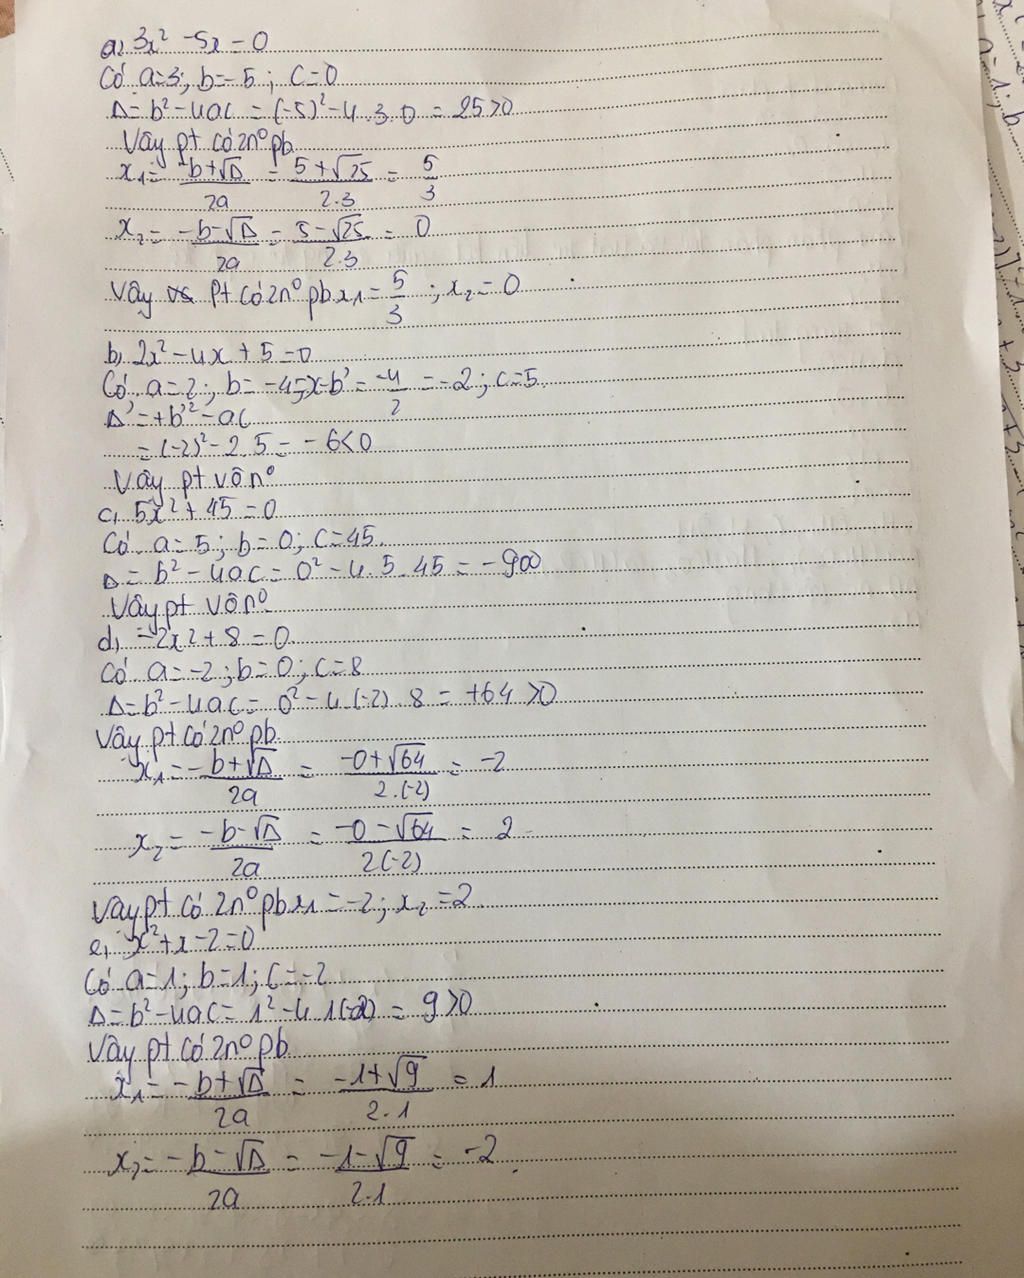 a, 3x² - 5x = 0
Có a = 3; b = -5; c = 0
Δ = b² - 4ac = (-5)² - 4.3.0 = 25 > 0
Vậy pt có 2n⁰ pb
x₁ = (-b + √Δ)/2a = (5 + √25)/2.3 = 5/3
x₂ = (-b - √Δ)/2a = (5 - √25)/2.3 = 0
Vậy pt có 2n⁰ pb x₁ = 5/3; x₂ = 0
b, 2x² - 4x + 5 = 0
Có a = 2; b = -4 => b' = -4/2 = -2; c = 5
Δ' = +b'² - ac
= (-2)² - 2.5 = -6 < 0
Vậy pt vô n⁰
c, 5x² + 45 = 0
Có a = 5; b = 0; c = 45
Δ = b² - 4ac = 0² - 4.5.45 = -900
Vậy pt vô n⁰
d, -2x² + 8 = 0
Có a = -2; b = 0; c = 8
Δ = b² - 4ac = 0² - 4.(-2).8 = +64 > 0
Vậy pt có 2n⁰ pb
x₁ = (-b + √Δ)/2a = (-0 + √64)/2.(-2) = -2
x₂ = (-b - √Δ)/2a = (-0 - √64)/2(-2) = 2
Vậy pt có 2n⁰ pb x₁ = -2; x₂ = 2
e, x² + x - 2 = 0
Có a = 1; b = 1; c = -2
Δ = b² - 4ac = 1² - 4.1(-2) = 9 > 0
Vậy pt có 2n⁰ pb
x₁ = (-b + √Δ)/2a = (-1 + √9)/2.1 = 1
x₂ = (-b - √Δ)/2a = (-1 - √9)/2.1 = -2